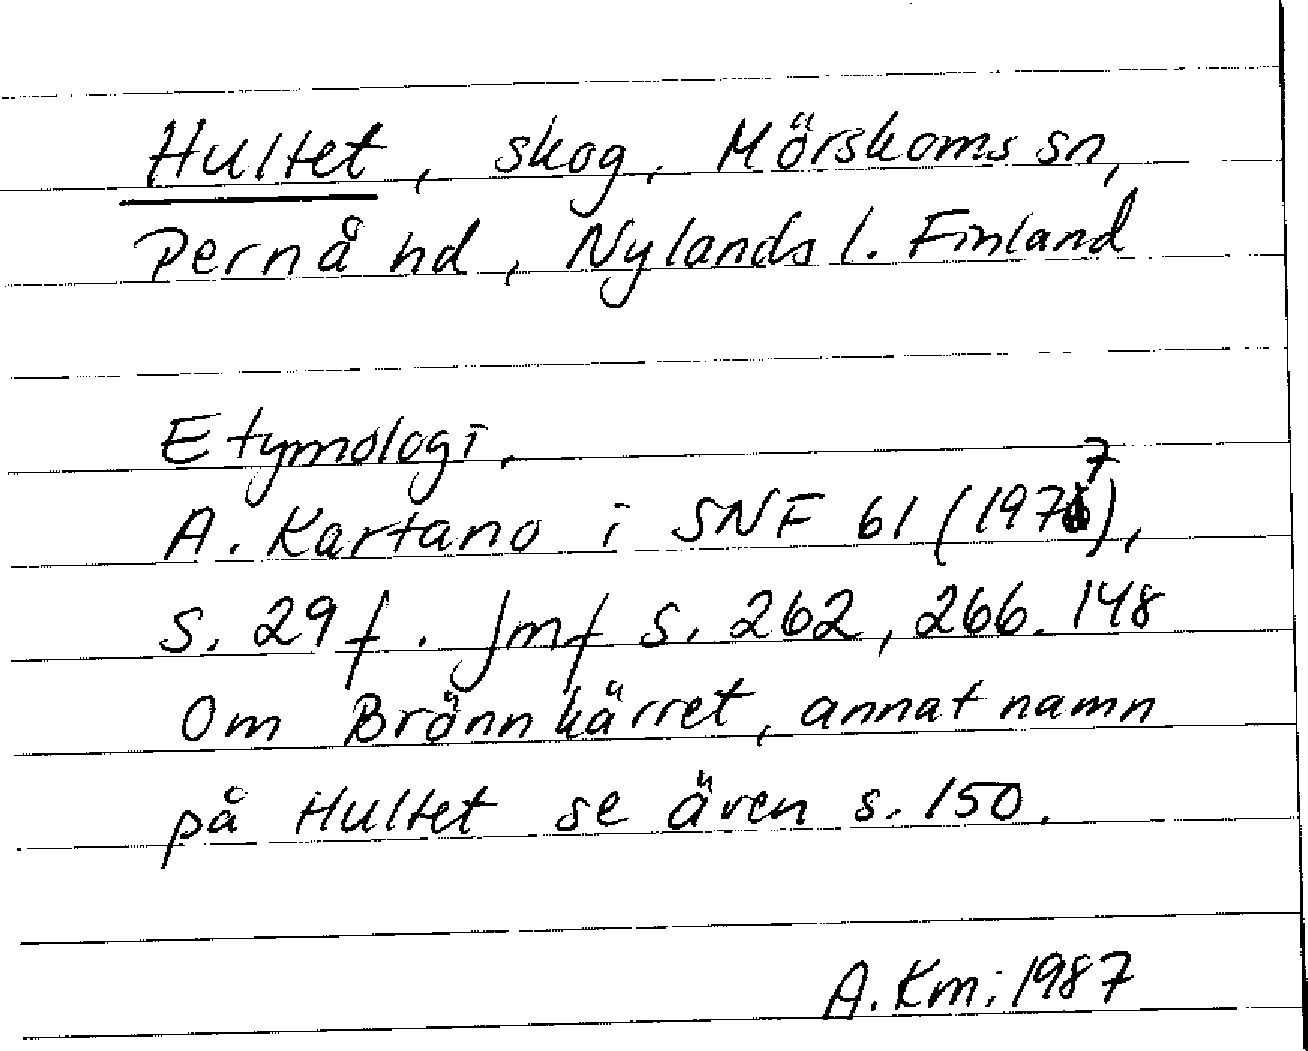 Hultet, skog, Mörskoms sn,
Pernå hd, Nylands l. Finland
Etymologi.
A. Kartano i SNF 61 (1977),
s. 29 f. Jmf s. 262, 266. 148
Om Brännkärret, annat namn
på Hultet se även s. 150.
A. Km: 1987